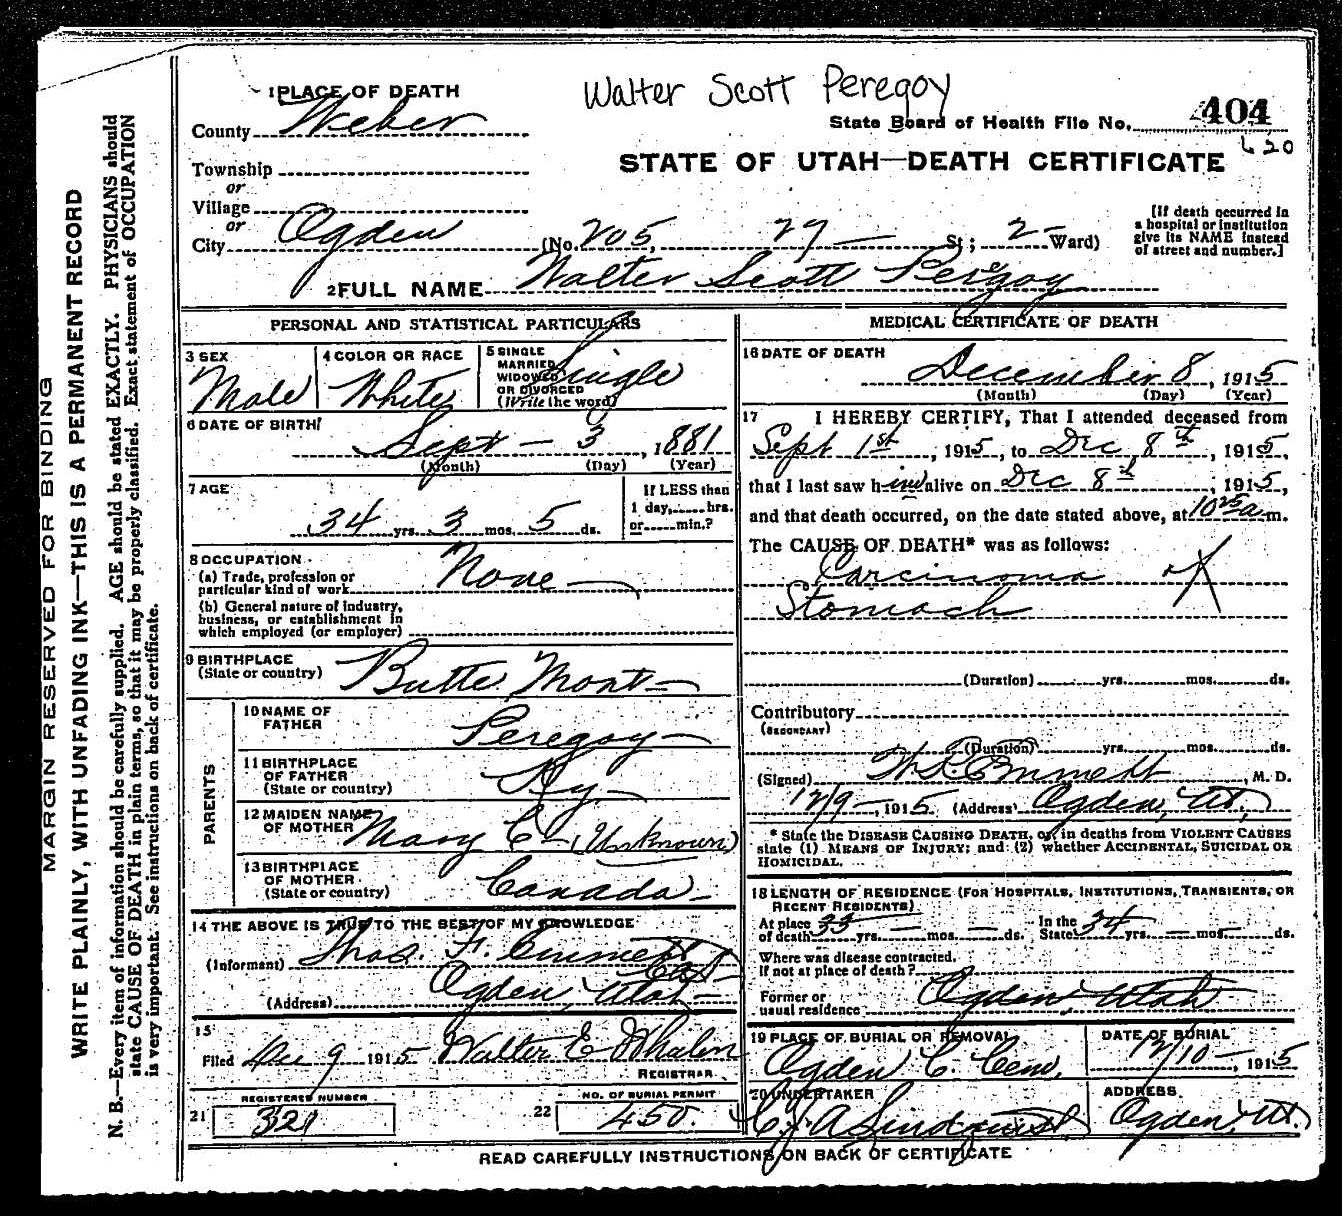 Walter Scott Peregoy
1 PLACE OF DEATH
County Weber
State Board of Health File No. 404
620
STATE OF UTAH—DEATH CERTIFICATE
Township
or
Village
or
City Ogden (No. 205, 29 — St; 2 — Ward)
[If death occurred in
a hospital or institution
give its NAME instead
of street and number.]
2 FULL NAME Walter Scott Pergoy
e
PERSONAL AND STATISTICAL PARTICULARS
3 SEX
Male
4 COLOR OR RACE
White
5 SINGLE
MARRIED
WIDOWED
OR DIVORCED
(Write the word)
Single
6 DATE OF BIRTH
Sept — 3, 1881
(Month) (Day) (Year)
7 AGE
34 yrs. 3 mos. 5 ds.
If LESS than
1 day,.....hrs.
or.....min.?
8 OCCUPATION
(a) Trade, profession or
particular kind of work None —
(b) General nature of industry,
business, or establishment in
which employed (or employer)
9 BIRTHPLACE
(State or country) Butte Mont —
PARENTS
10 NAME OF
FATHER
Peregoy —
11 BIRTHPLACE
OF FATHER
(State or country)
Ky. —
12 MAIDEN NAME
OF MOTHER
Mary E — (Unknown)
13 BIRTHPLACE
OF MOTHER
(State or country)
Canada —
14 THE ABOVE IS TRUE TO THE BEST OF MY KNOWLEDGE
(Informant) Thos. F. Emmett
(Address) Ogden, Utah —
15
Filed Dec 9 1915 Walter E Whalen
REGISTRAR
REGISTERED NUMBER
21 321
NO. OF BURIAL PERMIT
22 450.
MEDICAL CERTIFICATE OF DEATH
16 DATE OF DEATH
December 8, 1915
(Month) (Day) (Year)
17 I HEREBY CERTIFY, That I attended deceased from
Sept 1st, 1915, to Dec 8th, 1915,
that I last saw him alive on Dec 8th, 1915,
and that death occurred, on the date stated above, at 10 25 a m.
The CAUSE OF DEATH* was as follows:
Carcinoma
Stomach
(Duration) yrs. mos. ds.
Contributory
(SECONDARY)
(Duration) yrs. mos. ds.
(Signed) Emmett, M. D.
12/9 —, 1915 (Address) Ogden, Ut,
* State the DISEASE CAUSING DEATH, or, in deaths from VIOLENT CAUSES
state (1) MEANS OF INJURY; and (2) whether ACCIDENTAL, SUICIDAL OR
HOMICIDAL.
18 LENGTH OF RESIDENCE (FOR HOSPITALS, INSTITUTIONS, TRANSIENTS, OR
RECENT RESIDENTS)
At place
of death 33 yrs. — mos. — ds.
In the
State 34 yrs. — mos. — ds.
Where was disease contracted,
if not at place of death?
Former or
usual residence Ogden Utah
19 PLACE OF BURIAL OR REMOVAL
Ogden C. Cem.
DATE OF BURIAL
12/10 —, 1915
20 UNDERTAKER
C. J. A Lindquist
ADDRESS
Ogden, Ut.
READ CAREFULLY INSTRUCTIONS ON BACK OF CERTIFICATE
MARGIN RESERVED FOR BINDING
WRITE PLAINLY, WITH UNFADING INK—THIS IS A PERMANENT RECORD
N. B.—Every item of information should be carefully supplied. AGE should be stated EXACTLY. PHYSICIANS should
state CAUSE OF DEATH in plain terms, so that it may be properly classified. Exact statement of OCCUPATION
is very important. See instructions on back of certificate.